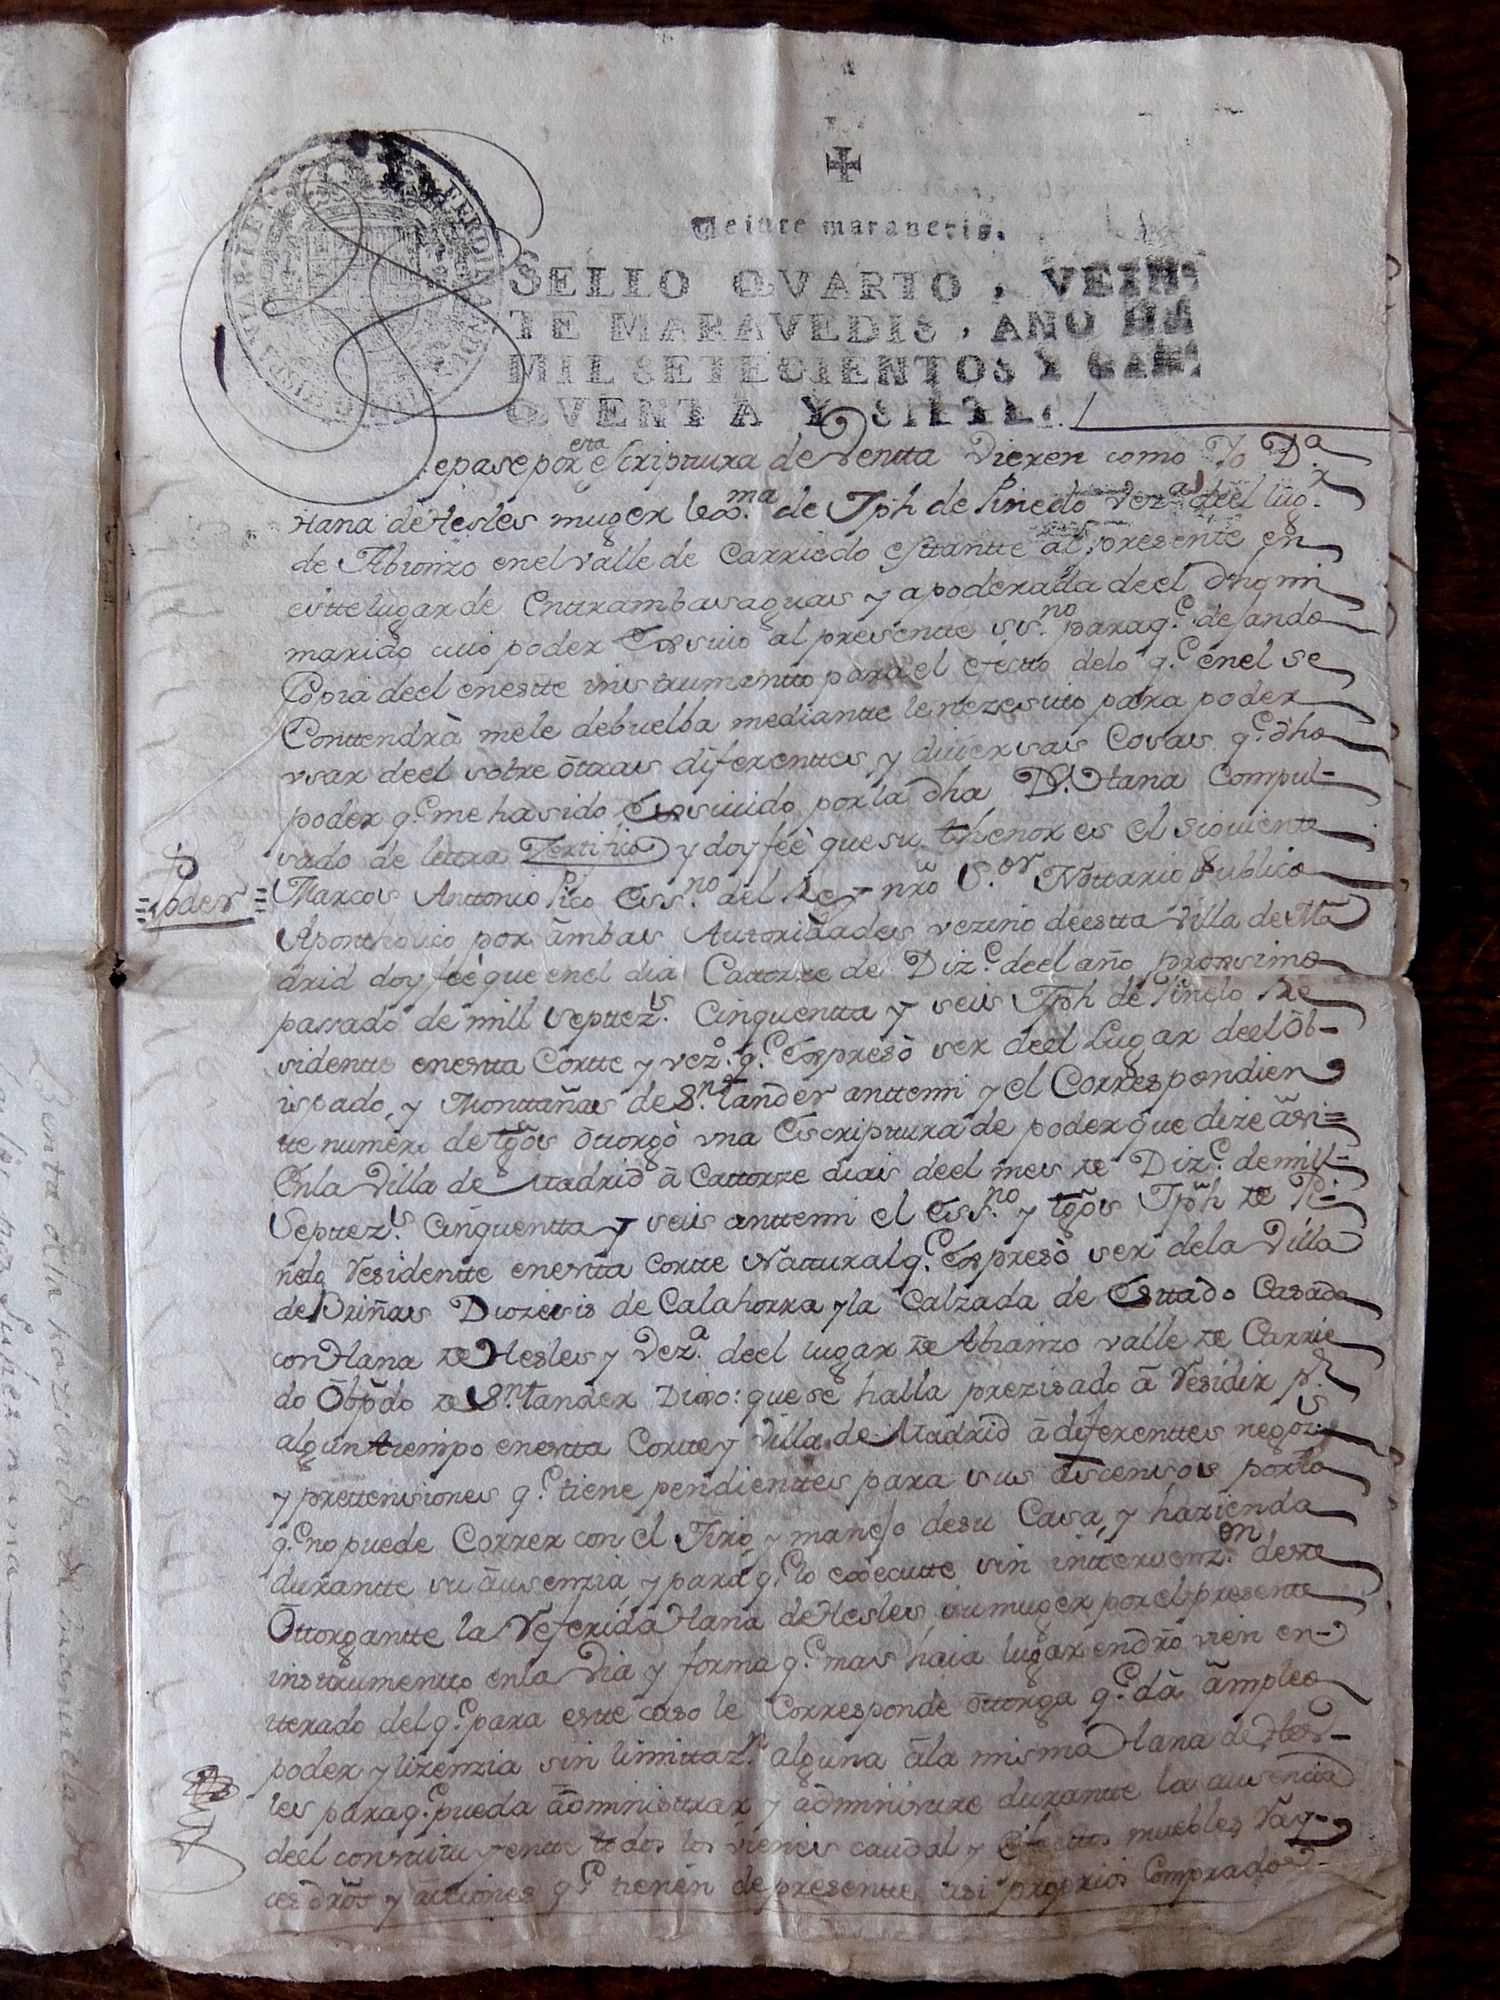 Veinte maravedis.
SELLO QVARTO, VEIN-
TE MARAVEDIS, AÑO
MIL SETECIENTOS Y CIN-
QVENTA Y SIETE.
Sepase por esta escripttura de Ventta Vieren como Yo D.ª
Mana de Hesles muger lexx.ma de Jph de Pinedo Vez.ª deel lug.r
de Abionzo enel valle de Carriedo esttantte al presente en
estte lugar de Entrambasaguas y apoderada deel dho mi
marido cuio poder Exsivio al presentte ess.no para q.e dejando
Copia deel enestte instrumentto para el efectto delo q.e enel se
Conttendrà mele debuelba mediantte le nezesito para poder
vsar deel sobre ôttras diferenttes y diversas Cosas q.e dho
poder q.e me ha sido Exsivido por la dha D.ª Mana Compul-
sado de lettra Zertifico y doy feè que su thenor es el siguiente
Poder
Marcos Anttonio Pico Ess.no del Rey nrõ S.or Nottario Publico
Aposttholico por âmbas Autoridades vezino deestta Villa de Mã
drid doy feè que enel dia Cattorze de Diz.e deel año proximo
passado de mill Septtez.s Cinquentta y seis Jph de Pinedo Re
sidentte enestta Cortte y vez.o q.e Expresò ser deel Lugar deel Ôb-
ispado, y Monttañas de S.n tander anttemi y el Correspondien
tte numèro de tgõs ôttorgò vna Escripttura de poder que dize âsi=
Enla Villa de Madrid â Cattorze dias deel mes de Diz.e de mil-
Septtez.s Cinquentta y seis anttemi el Ess.no y tgõs Jph de Pi-
nedo Residentte enestta Cortte Natural q.e Expresò ser dela Villa
de Briñas Diozesis de Calahorra y la Calzada de Esttado Casado
con Mana de Hesles y Vez.ª deel lugar de Abianzo valle de Carrie
do Ôbpdo de S.n tander Dixo: que se halla prezisado â Residir p.r
algun ttiempo enestta Cortte y Villa de Madrid â diferenttes negoz.s
y prettensiones q.e tiene pendienttes para sus âscensos porlo
q.e no puede Correr con el Jiro, y manejo desu Casa, y hazienda
durantte su âusenzia, y para q.e lo execute sin inttervenz.on deste
Ôttorgantte la Referida Mana de Hesles su muger por el presente
instrumentto enla Via y forma q.e mas haia lugar en drõ vien en-
tterado del q.e para estte caso le Corresponde ôttorga q.e dâ âmpleo
poder y lizenzia sin limittaz.n alguna âla misma Mana de Hes-
les para q.e pueda âdministtrar y âdministtre durantte la ausencia
deel constituyentte todos los vienes caudal y efecttos muebles Ray-
ces drõs y âcciones q.e tienen de presentte asi proprios Comprados